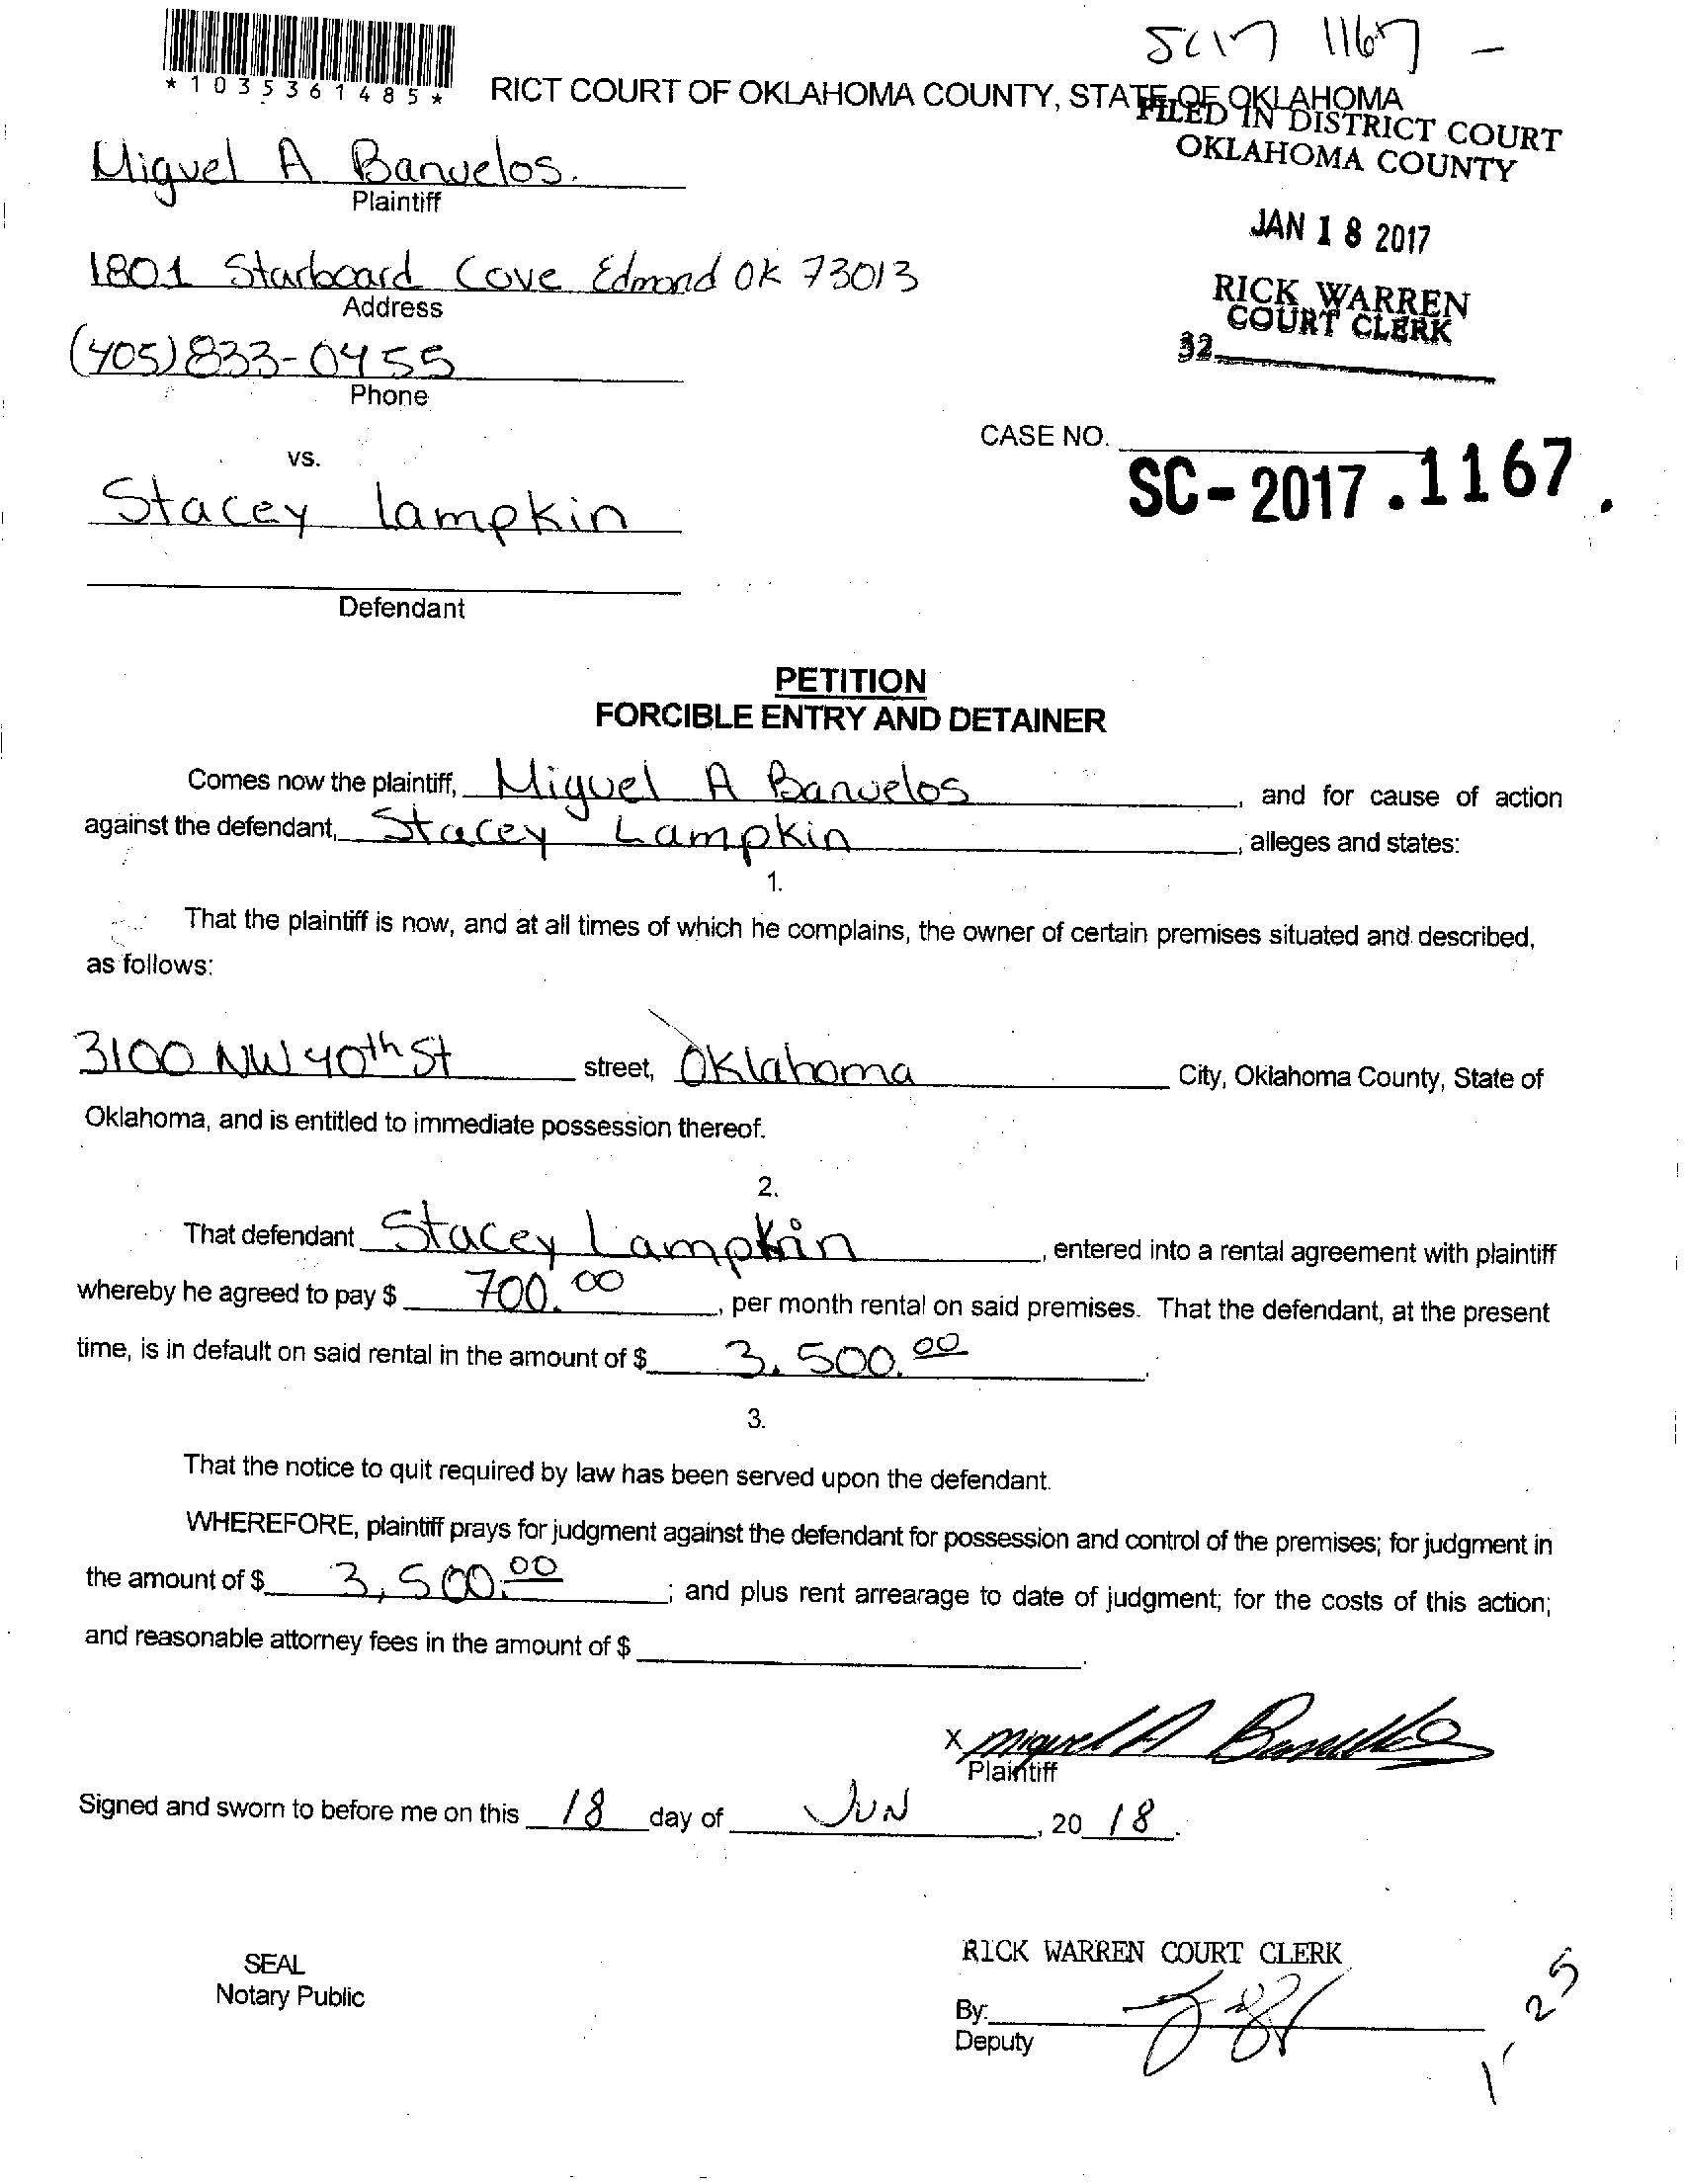 SC17 1167 -
*1035361485*
RICT COURT OF OKLAHOMA COUNTY, STATE OF OKLAHOMA
FILED IN DISTRICT COURT
OKLAHOMA COUNTY
Miguel A Banuelos.
Plaintiff
JAN 18 2017
1801 Starboard Cove Edmond OK 73013
Address
RICK WARREN
COURT CLERK
32
(405) 833-0455
Phone
CASE NO.
SC-2017.1167.
vs.
Stacey Lampkin
Defendant
PETITION
FORCIBLE ENTRY AND DETAINER
Comes now the plaintiff, Miguel A Banuelos, and for cause of action
against the defendant, Stacey Lampkin, alleges and states:
1.
That the plaintiff is now, and at all times of which he complains, the owner of certain premises situated and described,
as follows:
3100 NW 40th St street, Oklahoma City, Oklahoma County, State of
Oklahoma, and is entitled to immediate possession thereof.
2.
That defendant Stacey Lampkin, entered into a rental agreement with plaintiff
whereby he agreed to pay $ 700.00, per month rental on said premises. That the defendant, at the present
time, is in default on said rental in the amount of $ 3.500.00.
3.
That the notice to quit required by law has been served upon the defendant.
WHEREFORE, plaintiff prays for judgment against the defendant for possession and control of the premises; for judgment in
the amount of $ 3,500.00; and plus rent arrearage to date of judgment; for the costs of this action;
and reasonable attorney fees in the amount of $ .
x Miguel A Banuelos
Plaintiff
Signed and sworn to before me on this 18 day of JUN, 20 18.
SEAL
Notary Public
RICK WARREN COURT CLERK
By:
Deputy
1-25